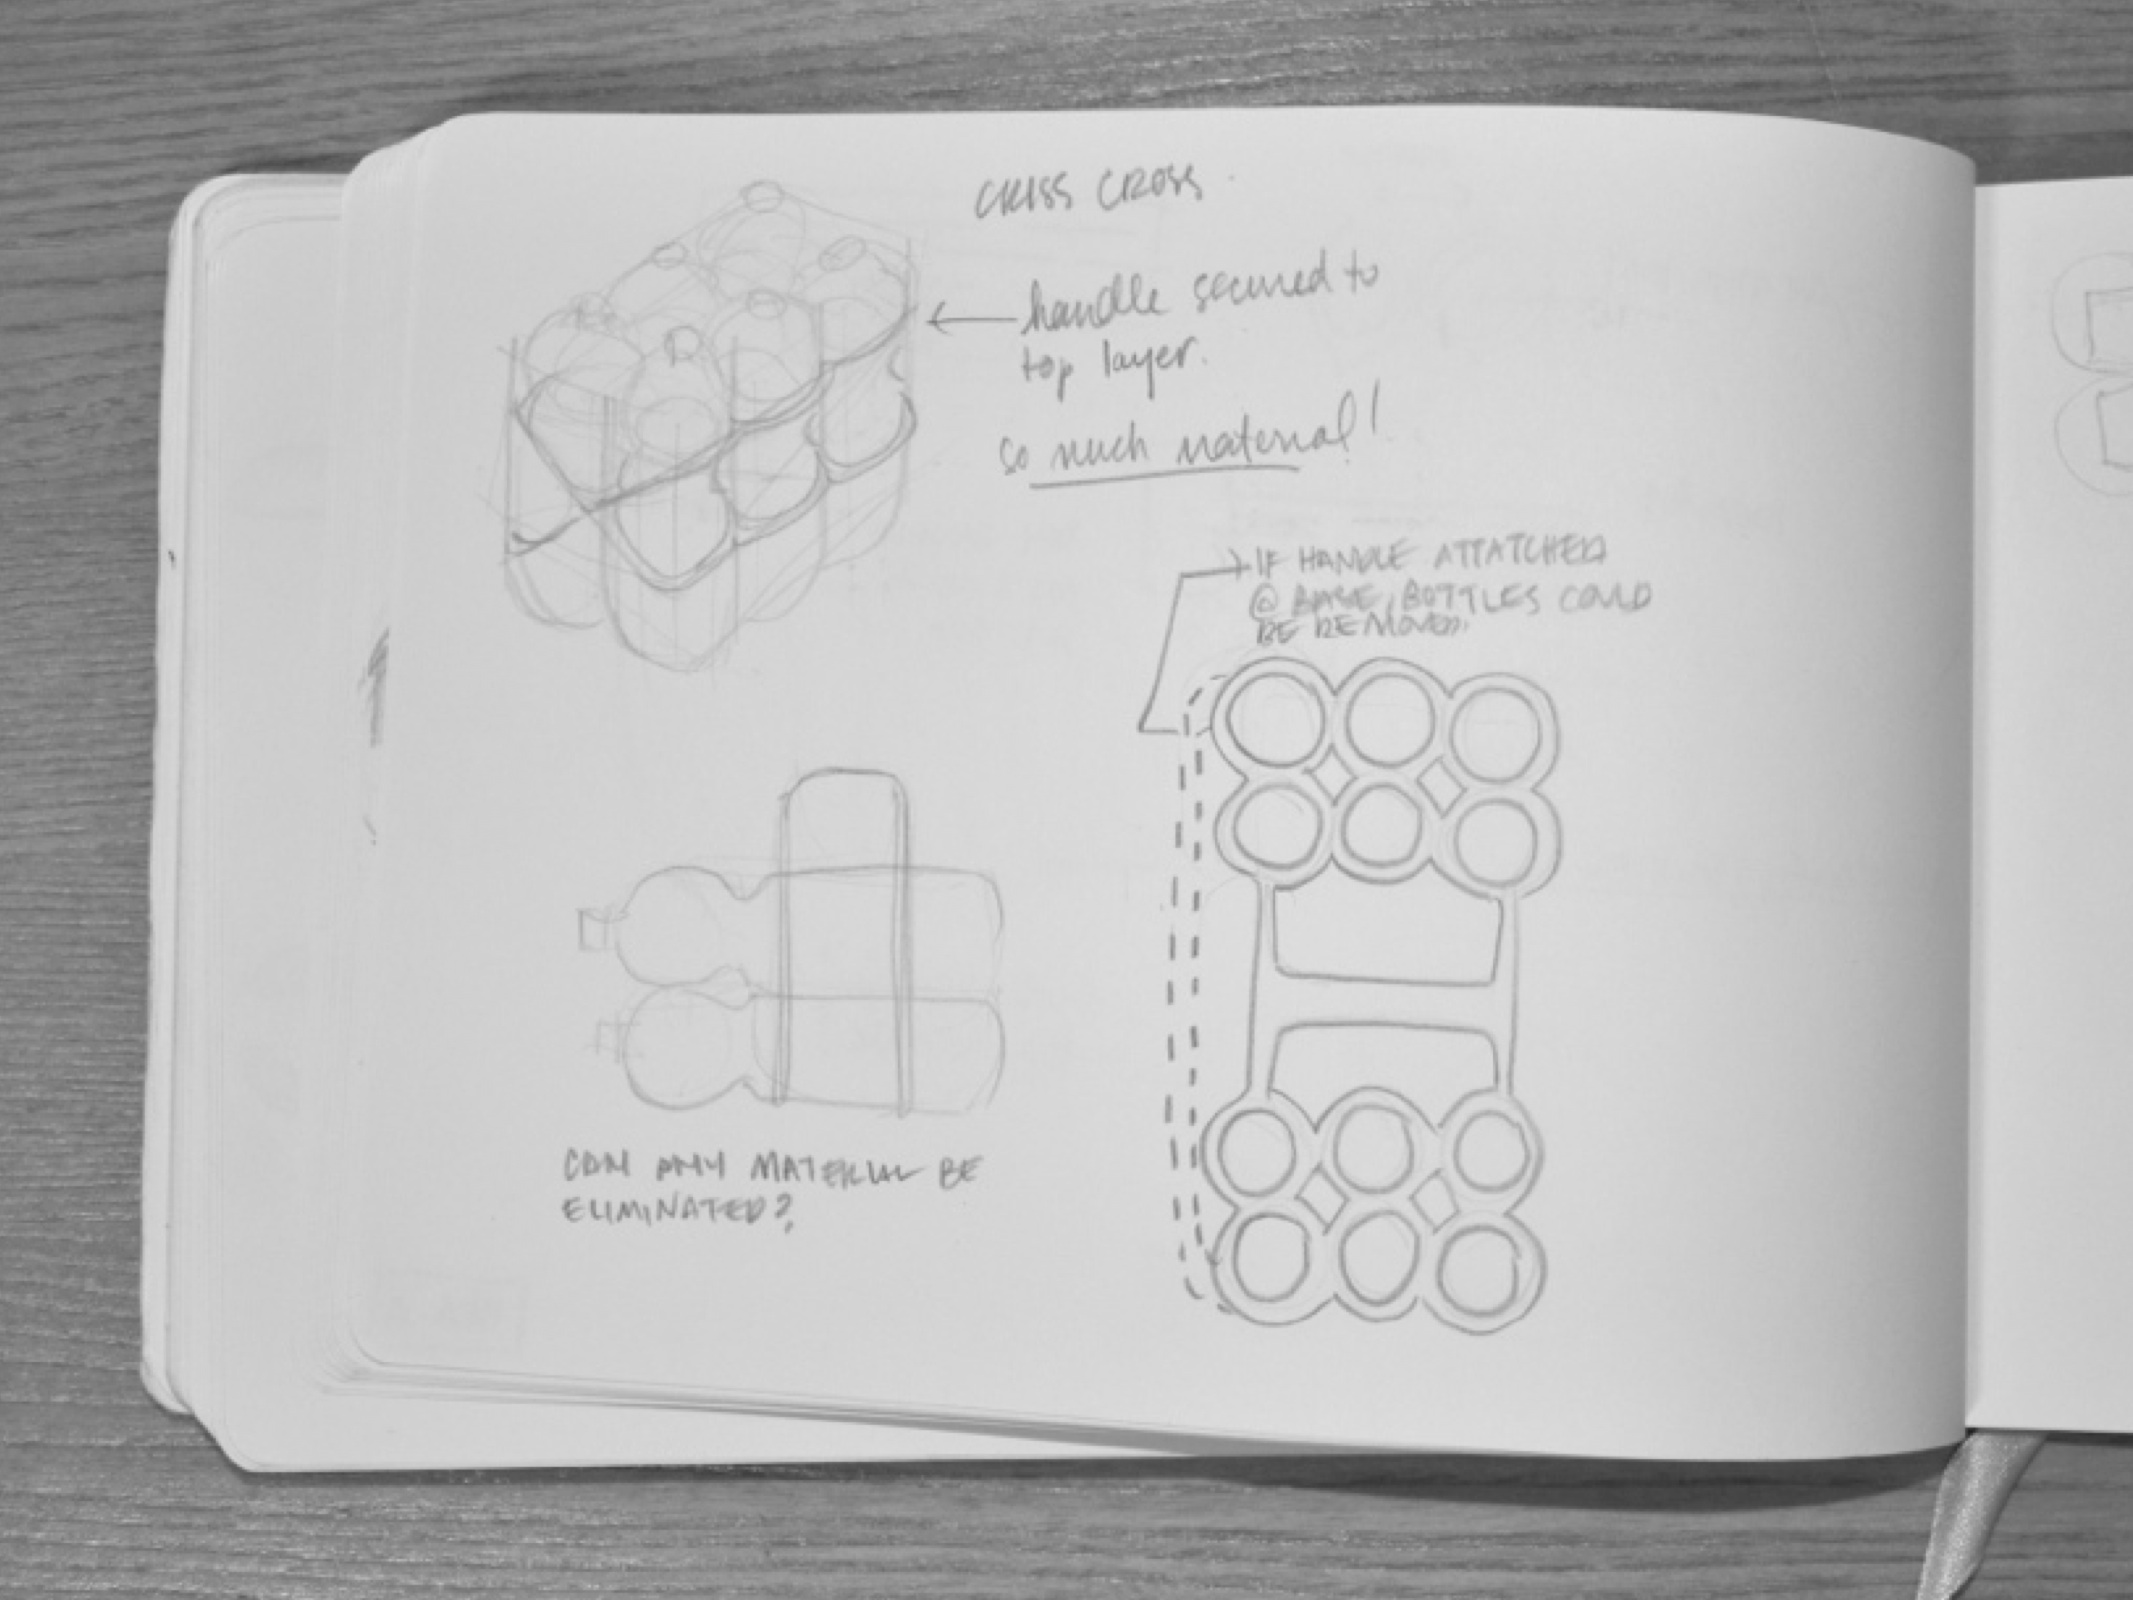 CRISS CROSS
handle secured to
top layer.
so much material!
IF HANDLE ATTATCHED
@ BASE, BOTTLES COULD
BE REMOVED.
CAN ANY MATERIAL BE
ELIMINATED?